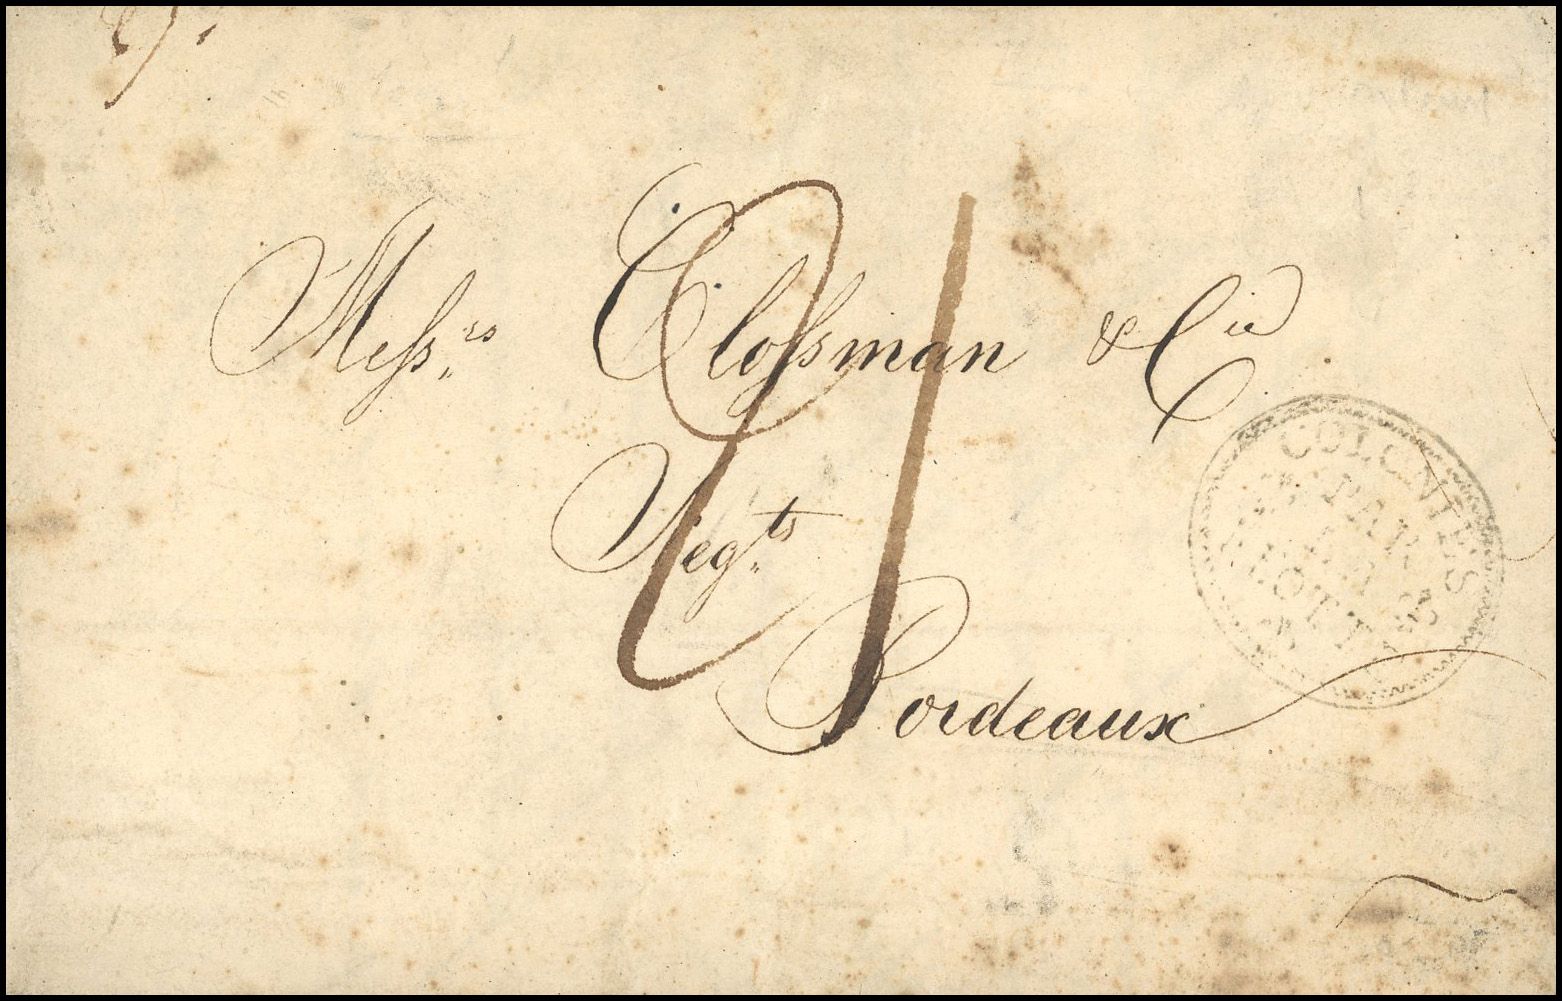 Messrs Clossman & Cie
Negts
Bordeaux
21
COLONIES
PAR